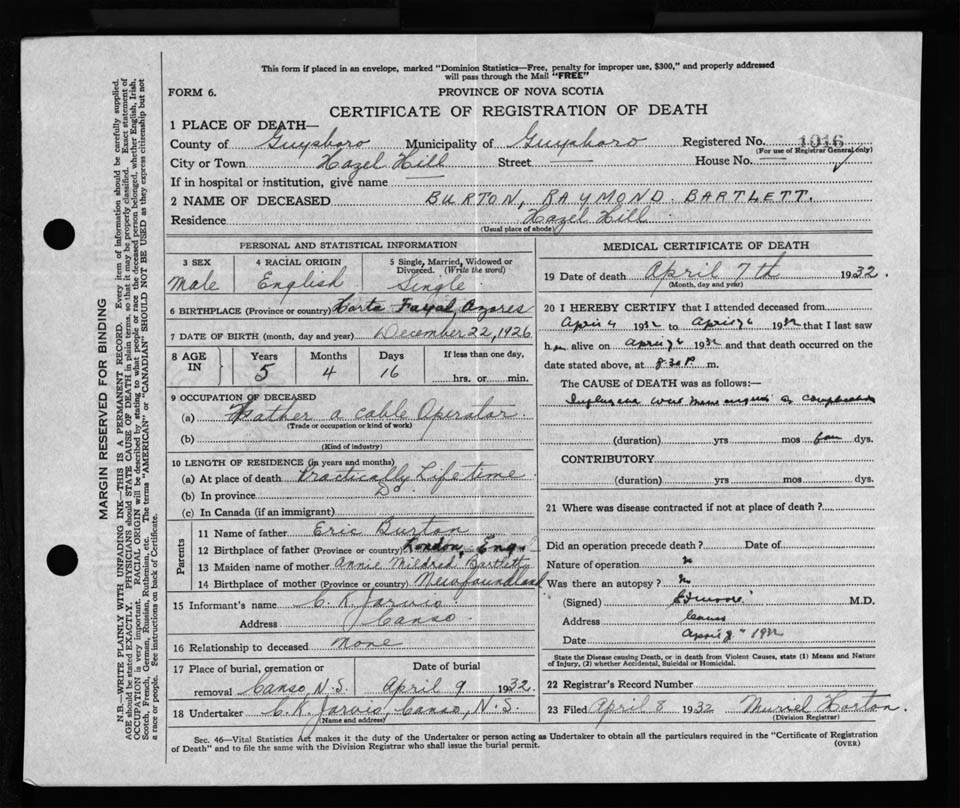 This form if placed in an envelope, marked "Dominion Statistics—Free, penalty for improper use, $300," and properly addressed
will pass through the Mail "FREE"
FORM 6.
PROVINCE OF NOVA SCOTIA
CERTIFICATE OF REGISTRATION OF DEATH
1 PLACE OF DEATH—
County of Guysboro Municipality of Guysboro Registered No. 1016
(For use of Registrar General only)
City or Town Hazel Hill Street — House No. —
If in hospital or institution, give name —
2 NAME OF DECEASED BURTON, RAYMOND BARTLETT.
Residence Hazel Hill
(Usual place of abode)
PERSONAL AND STATISTICAL INFORMATION
3 SEX 4 RACIAL ORIGIN 5 Single, Married, Widowed or
Divorced. (Write the word)
Male English Single
6 BIRTHPLACE (Province or country) Horta Fayal, Azores
7 DATE OF BIRTH (month, day and year) December 22, 1926
8 AGE IN Years Months Days If less than one day,
5 4 16 hrs. or min.
9 OCCUPATION OF DECEASED
(a) Father a cable Operator.
(Trade or occupation or kind of work)
(b)
(Kind of industry)
10 LENGTH OF RESIDENCE (in years and months)
(a) At place of death Practically Life time
(b) In province Do.
(c) In Canada (if an immigrant)
Parents
11 Name of father Eric Burton
12 Birthplace of father (Province or country) London, Eng.
13 Maiden name of mother Annie Mildred Bartlett
14 Birthplace of mother (Province or country) Newfoundland
15 Informant's name C. K. Jarvis.
Address Canso.
16 Relationship to deceased None
17 Place of burial, cremation or Date of burial
removal Canso, N.S. April 9 1932.
18 Undertaker C. K. Jarvis, Canso, N.S.
(Name and address)
MEDICAL CERTIFICATE OF DEATH
19 Date of death April 7th 1932.
(Month, day and year)
20 I HEREBY CERTIFY that I attended deceased from
April 4 1932 to April 6 1932 that I last saw
h alive on April 6 1932 and that death occurred on the
date stated above, at 8.30 P. m.
The CAUSE of DEATH was as follows:—
Influenza with
(duration) yrs mos dys.
CONTRIBUTORY
(duration) yrs mos dys.
21 Where was disease contracted if not at place of death?
Did an operation precede death? Date of
Nature of operation
Was there an autopsy?
(Signed) M.D.
Address Canso
Date April 8" 1932
State the Disease causing Death, or in death from Violent Causes, state (1) Means and Nature
of Injury, (2) whether Accidental, Suicidal or Homicidal.
22 Registrar's Record Number
23 Filed April 8 1932 Muriel Horton.
(Division Registrar)
Sec. 46—Vital Statistics Act makes it the duty of the Undertaker or person acting as Undertaker to obtain all the particulars required in the "Certificate of Registration
of Death" and to file the same with the Division Registrar who shall issue the burial permit.
(OVER)
MARGIN RESERVED FOR BINDING
N.B.—WRITE PLAINLY WITH UNFADING INK—THIS IS A PERMANENT RECORD. Every item of information should be carefully supplied.
AGE should be stated EXACTLY. PHYSICIANS should STATE CAUSE OF DEATH in plain terms, so that it may be properly classified. Exact statement of
OCCUPATION is very important. RACIAL ORIGIN will be described by stating to what people or race the deceased person belonged, whether English, Irish,
Scotch, French, German, Russian, Ruthenian, etc. The terms "AMERICAN" or "CANADIAN" SHOULD NOT BE USED as they express citizenship but not
a race or people. See instructions on back of Certificate.